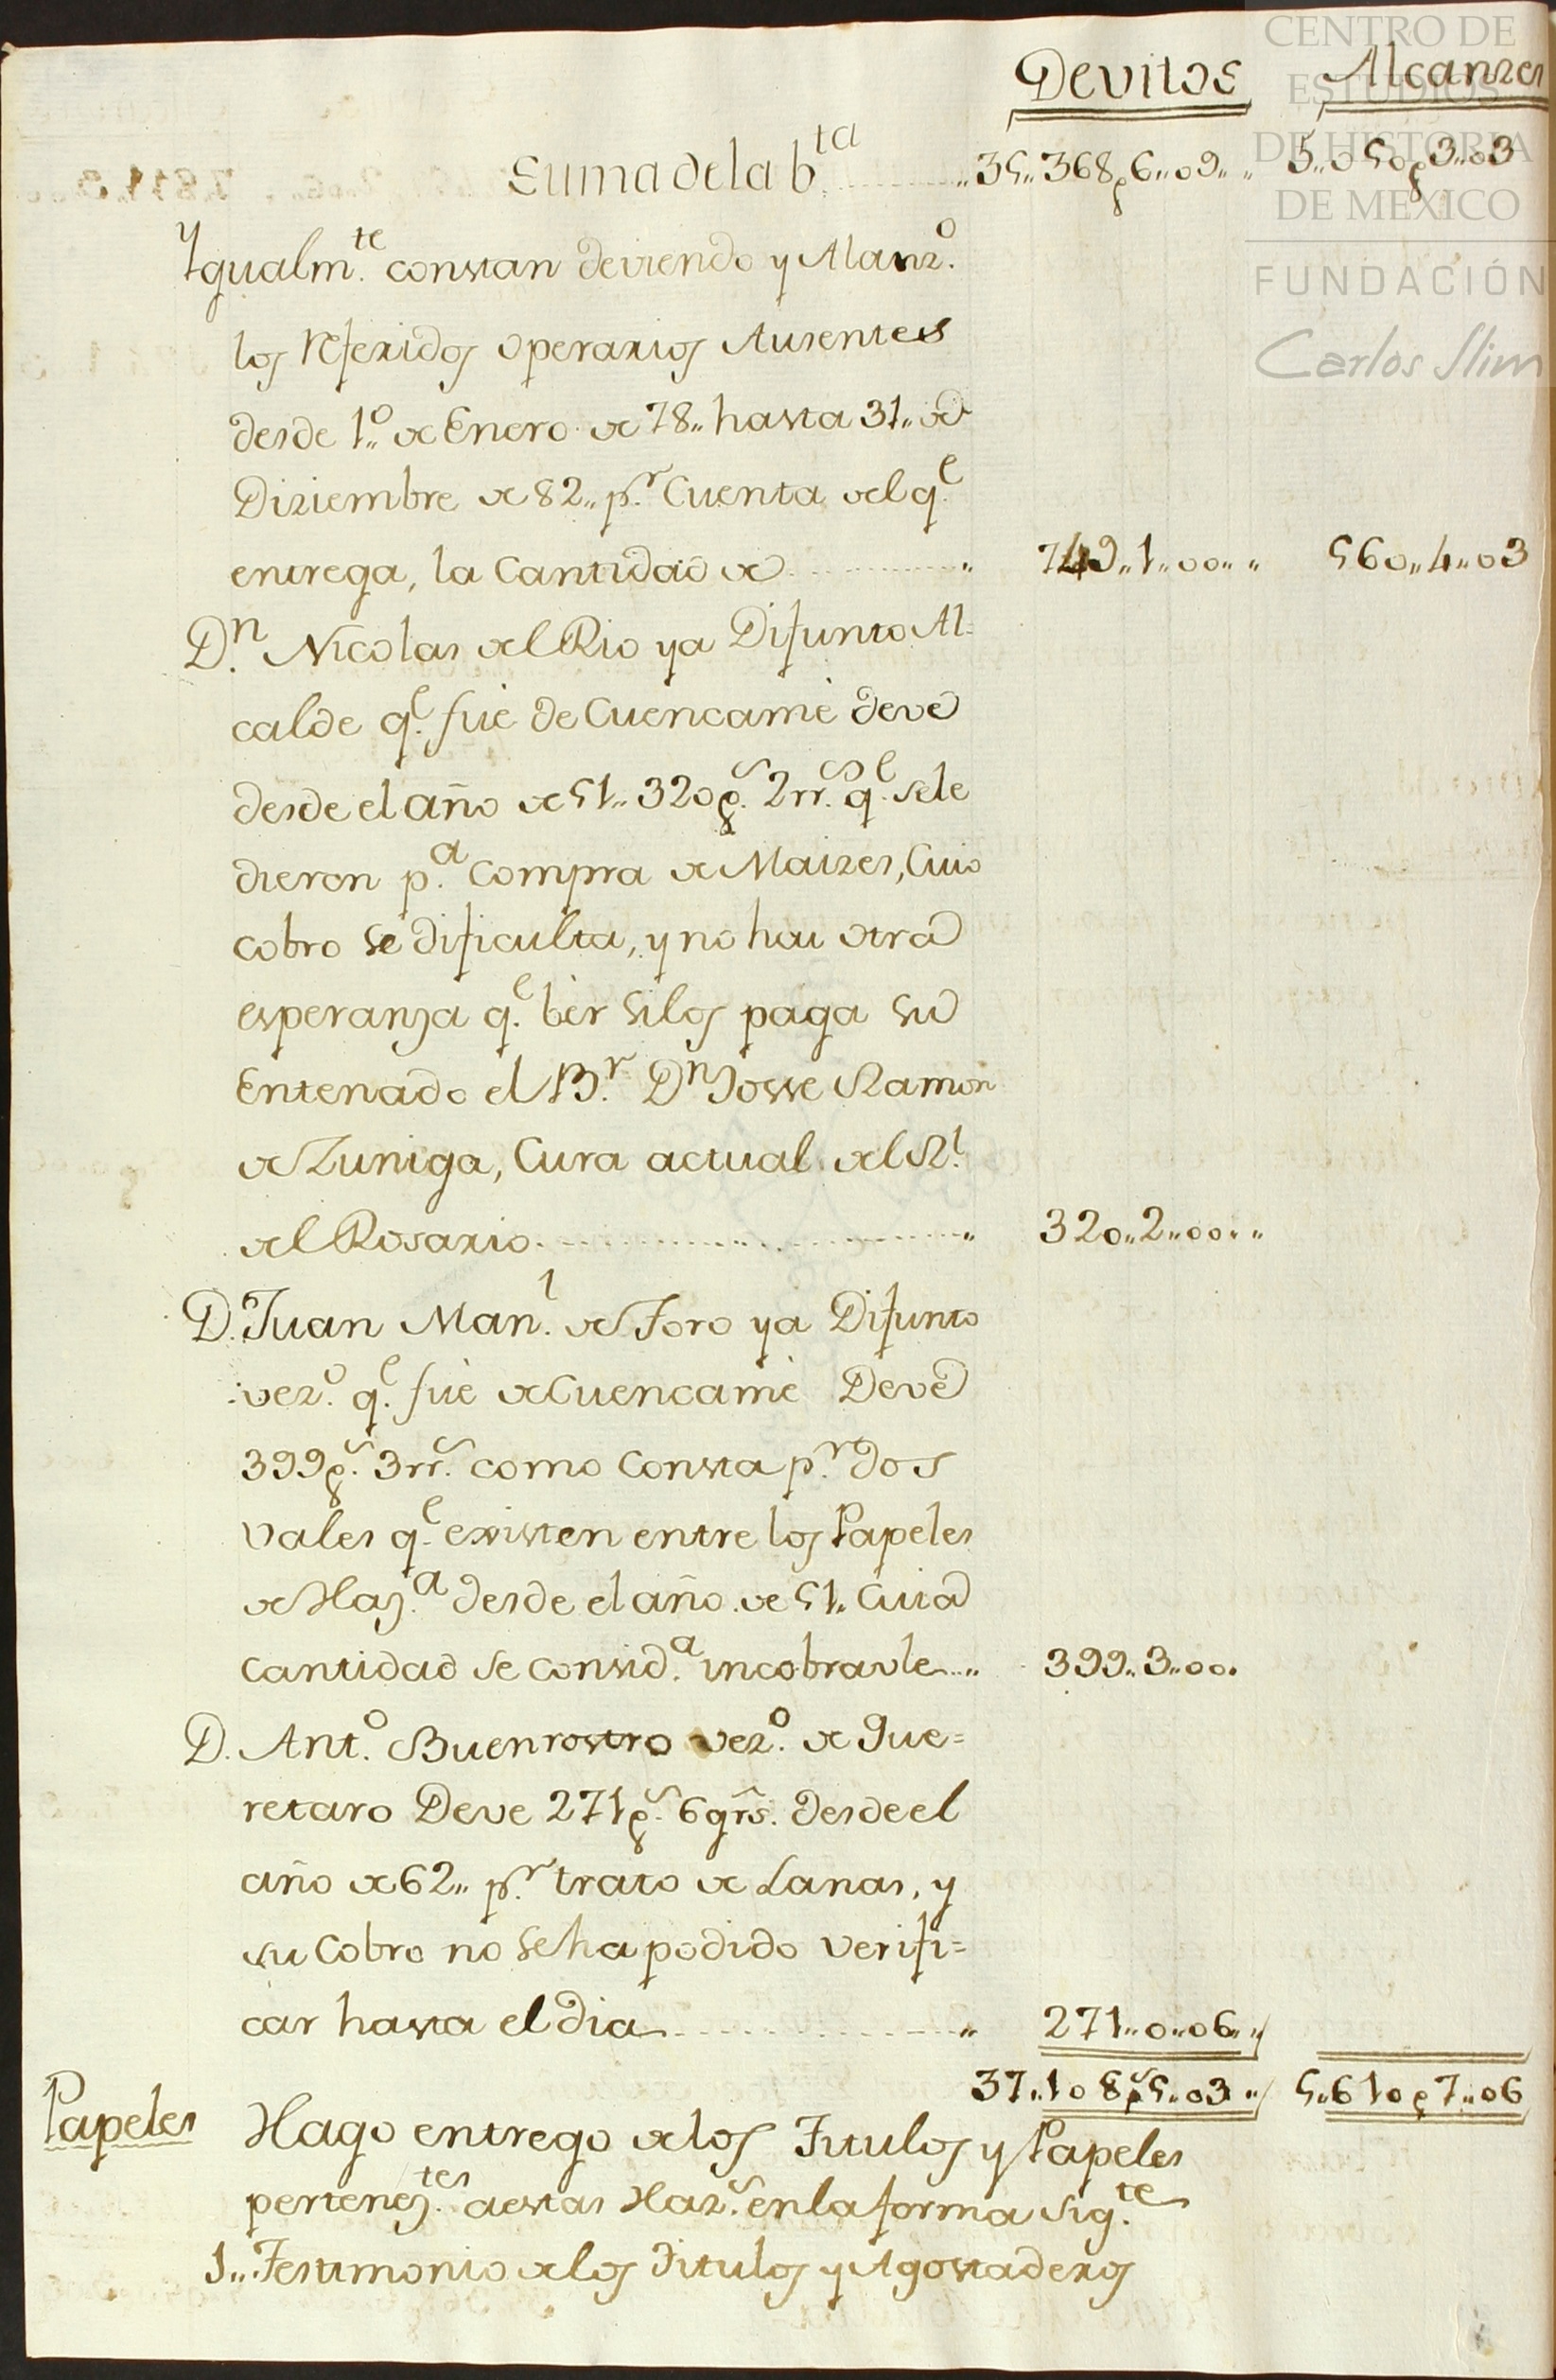 CENTRO DE
ESTUDIOS
DE HISTORIA
DE MEXICO
FUNDACIÓN
Carlos Slim
Devitos Alcanzes
Suma de la b.ta 35,,368p6,,09,, 5,,050p3,,03
Ygualm.te constan deviendo y Alanz.o
los Referidos Operarios Ausentes
desde 1,,o de Enero de 78,, hasta 31,, de
Diziembre de 82,, p.r Cuenta del q.e
entrega, la Cantidad de 749,,1,,00,,,, 560,,4,,03
D.n Nicolas del Rio ya Difunto Al=
calde q.e fuè de Cuencamè deve
desde el año de 51,, 320p.s 2rr.s q.e sele
dieron p.a compra de Maizes, Cuio
cobro se dificulta, y no hai otra
esperanza q.e bèr silos paga su
Entenado el B.r D.n Josse Ramon
de Zuniga, Cura actual del R.l
del Rosario 320,,2,,00,,,,
D. Juan Man.l de Toro ya Difunto
vez.o q.e fuè de Cuencamè Deve
399p.s 3rr.s como Consta p.r dos
Vales q.e existen entre los Papeles
de Haz.a desde el año de 51,, Cuia
cantidad se Consid.a incobravle 399,,3,,00,
D. Ant.o Buenrostro vez.o de Que=
retaro Deve 271p.s 6grs. desde el
año de 62,, p.r trato de Lanas, y
su Cobro no se ha podido verifi=
car hasta el dia 271,,0,,06,,,,
37,,108p.s5,,03,, 5,,610p7,,06
Papeles Hago entrego de los Titulos y Papeles
pertenez.tes aestas Haz.s en la forma sig.te
1,, Testimonio de los Titulos y Agostaderos